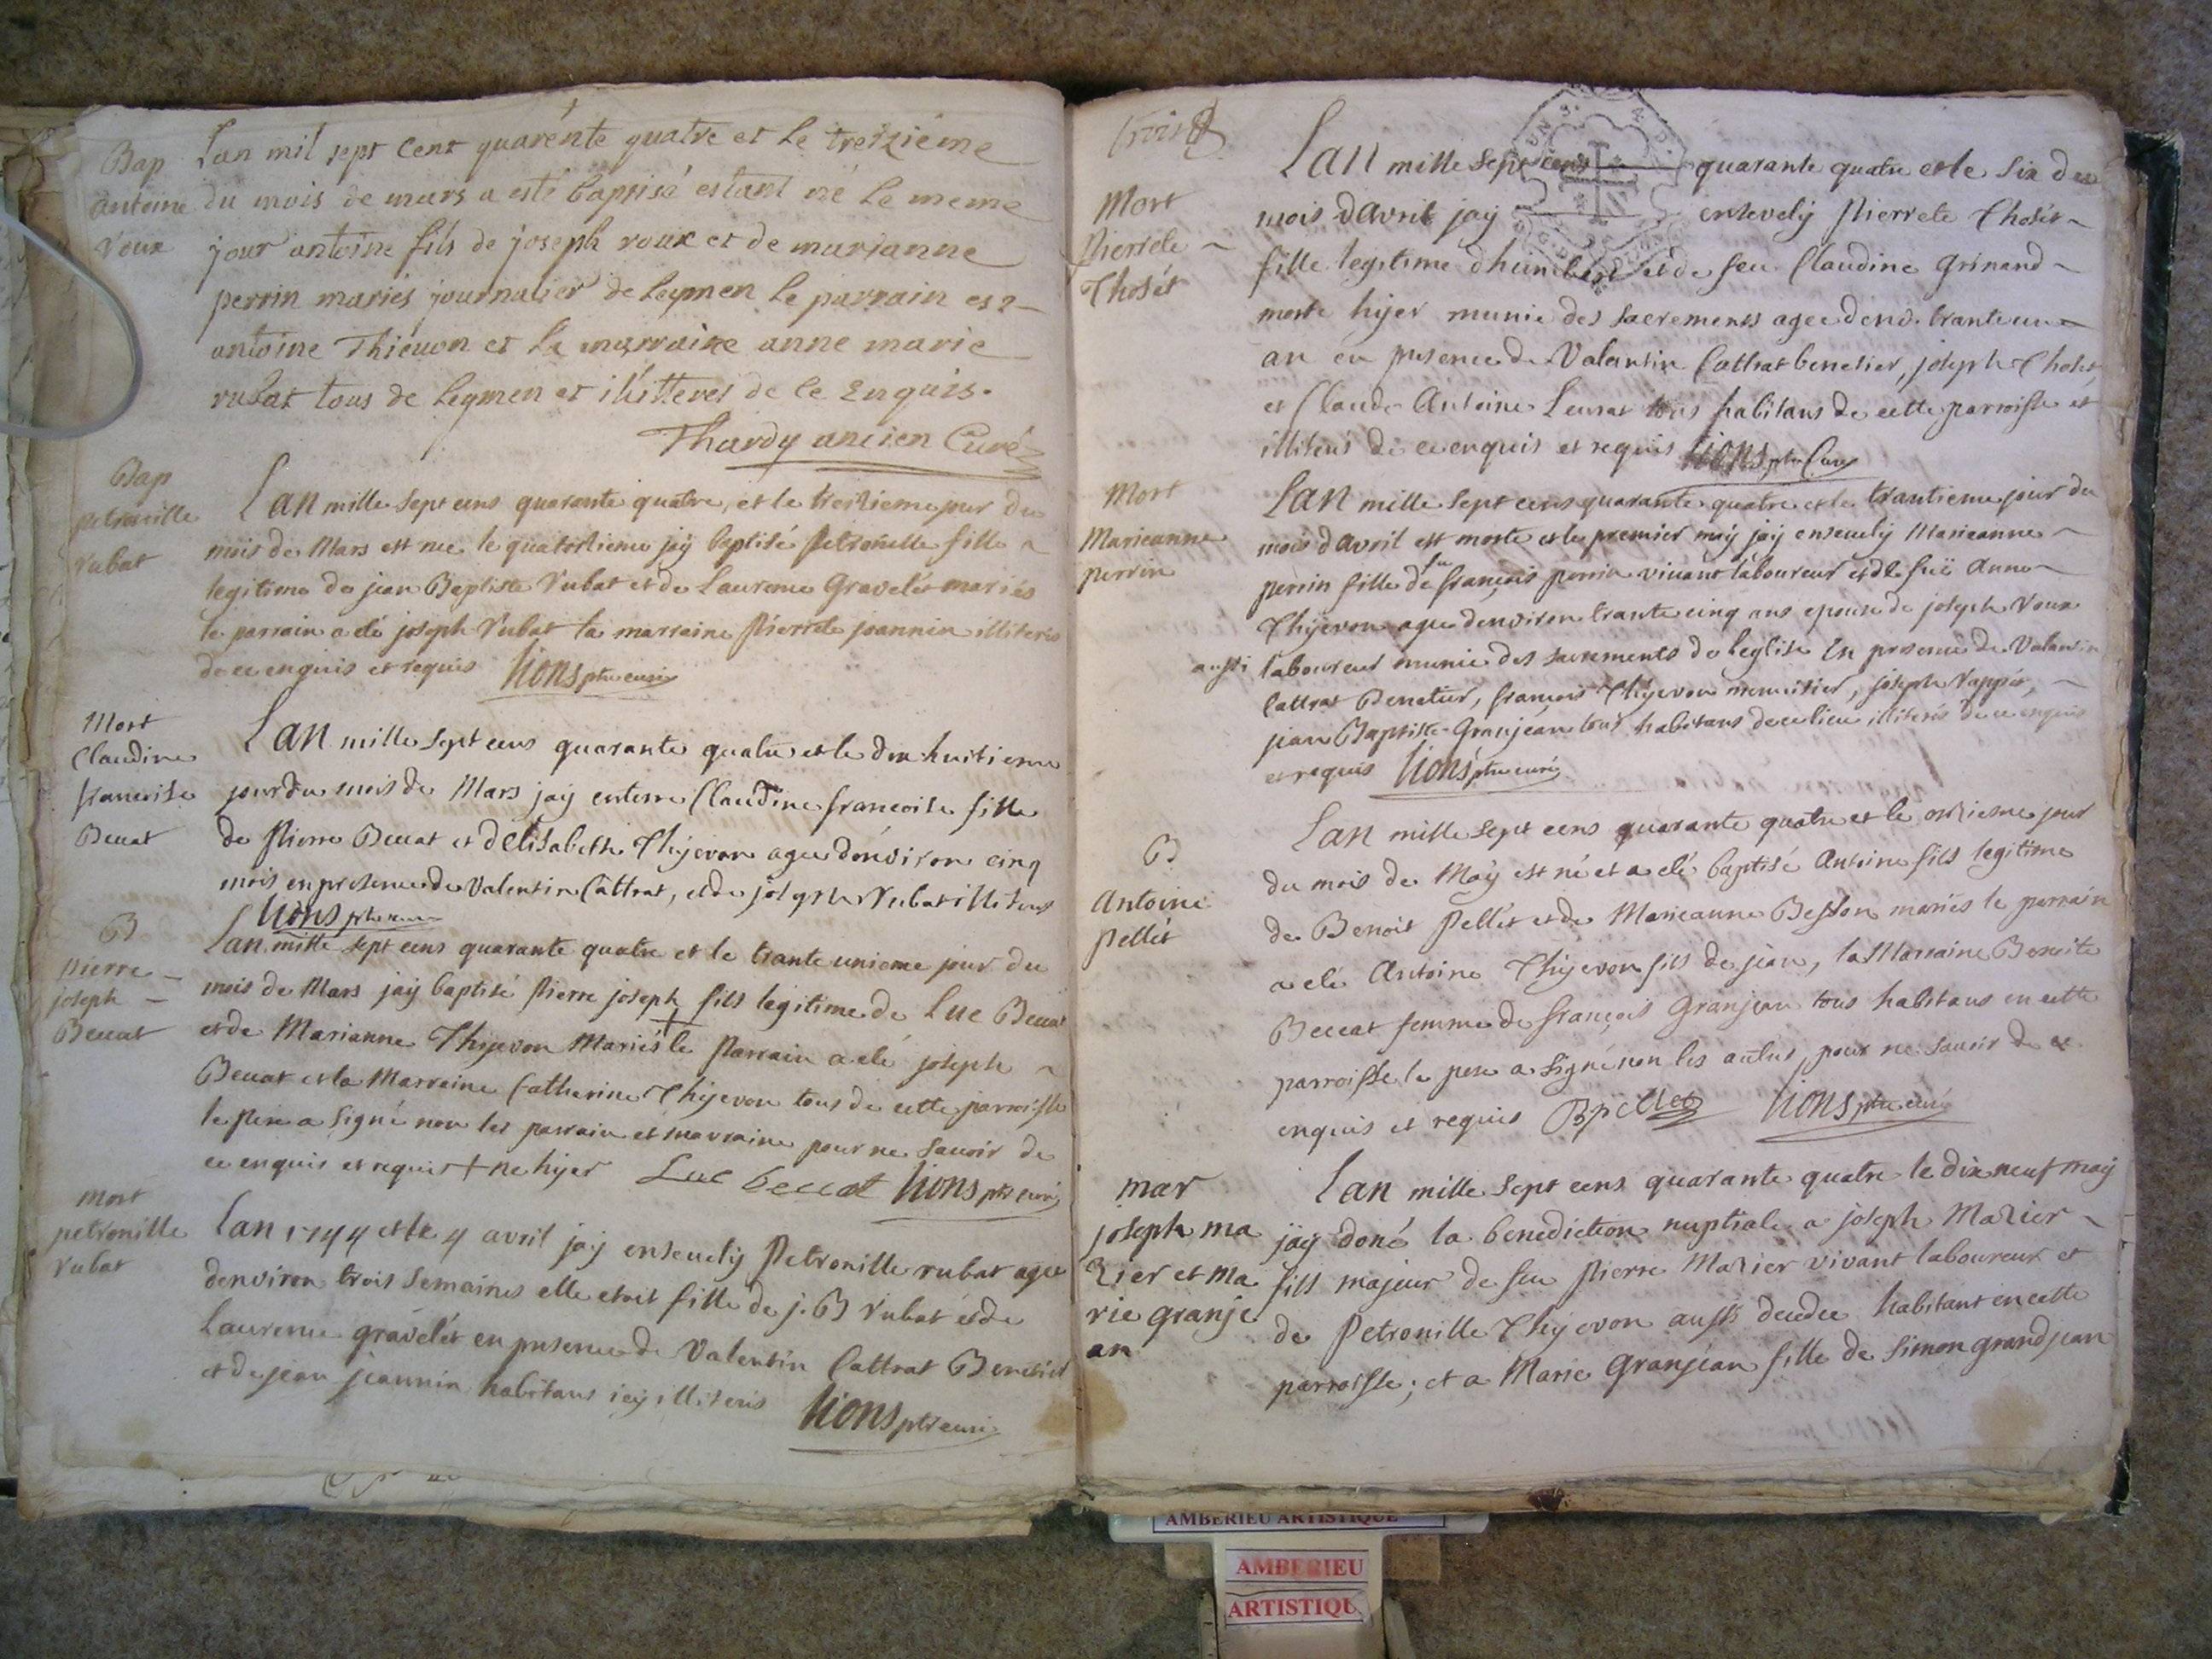 Bap
antoine
roux
Lan mil sept Cent quarénte quatre et Le treizième
du mois de mars a esté baptisé estant né Le meme
jour antoine fils de joseph roux et de marianne
perrin mariés journalier de Leymen Le parrain est
antoine Thievon et La marraine anne marie
rubat tous de Leymen et illitteres de ce Enquis.
Thardy ancien Curé
Bap
petronille
rubat
Lan mille sept cens quarante quatre, et le treizieme jour du
mois de Mars est nee le quatorzieme jaÿ baptisé Petronille fille
legitime de jean Baptiste Rubat et de Laurence Gravelét mariés
le parrain a eté joseph Rubat la marraine Pierrete joannin illiterés
de ce enquis et requis Lions ptre curé
Mort
Claudine
francoise
Beccat
Lan mille sept cens quarante quatre et le dix huitieme
jour du mois de Mars jaÿ enterré Claudine francoise fille
de Pierre Beccat et d'Elisabeth Thijevon agee d'environ cinq
mois en presence de Valentin Cattrat, et de joseph Rubat illiteres
Lions ptre curé
B
pierre
joseph
Beccat
Lan mille sept cens quarante quatre et le trante unieme jour du
mois de Mars jaÿ baptisé Pierre joseph + fils legitime de Luc Beccat
et de Marianne Thijevon Mariés le Parrain a eté joseph
Beccat et la Marraine Catherine Thijevon tous de cette parroisse
le pere a signé non les parrain et marraine pour ne savoir de
ce enquis et requis + ne hijer Luc beccat Lions ptre curé
mort
petronille
rubat
Lan 1744 et le 4 avril jaÿ ensevely Petronille rubat agee
denviron trois semaines elle etoit fille de j. B Rubat et de
Laurence gravelét en presence de Valentin Cattrat Benetier
et de jean jeannin habitans icy illiterés Lions ptre curé
trois
Mort
Pierrete
Thosét
Lan mille sept cens quarante quatre et le six du
mois d'Avril jaÿ ensevelÿ Pierrete Thosét
fille legitime d'humbert et de feue Claudine Grinand
morte hijer munie des sacrements agee d'env. trante un
an en presence de Valantin Cattrat benetier, joseph Thosét
et Claude Antoine Leurat tous habitans de cette parroisse et
illiterés de ce enquis et requis Lions ptre Curé
Mort
Marieanne
perrin
Lan mille sept cens quarante quatre et le trantieme jour du
mois d'Avril est morte et le premier maÿ jaÿ ensevely Marieanne
perrin fille de feu françois perrin vivant laboureur et de feüe Anne
Thijevon agee d'environ trante cinq ans epouse de joseph Roux
aussi laboureur munie des sacrements de leglise En presence de Valantin
Cattrat Benetier, françois Thijevon, joseph Rappét,
jean Baptiste Granjean tous habitans de ce lieu illiterés de ce enquis
et requis Lions ptre curé
B
Antoine
Pellét
Lan mille sept cens quarante quatre et le onzieme jour
du mois de Maÿ est né et a eté baptisé Antoine fils legitime
de Benoit Pellét et de Marieanne Besson mariés le parrain
a eté Antoine Thijevon fils de jean, la Marraine Benoite
Beccat femme de françois Granjean tous habitans en cette
parroisse le pere a signé non les autres, pour ne savoir de ce
enquis et requis B pellet Lions ptre curé
mar
joseph ma
zier et ma
rie granje
an
Lan mille sept cens quarante quatre le dix neuf maÿ
jaÿ doné la benediction nuptiale a joseph Mazier
fils majeur de feu Pierre Mazier vivant laboureur et
de Petronille Thijevon aussi decedee habitant en cette
parroisse; et a Marie Granjean fille de Simon grandjean
AMBERIEU ARTISTIQUE
AMBERIEU
ARTISTIQU